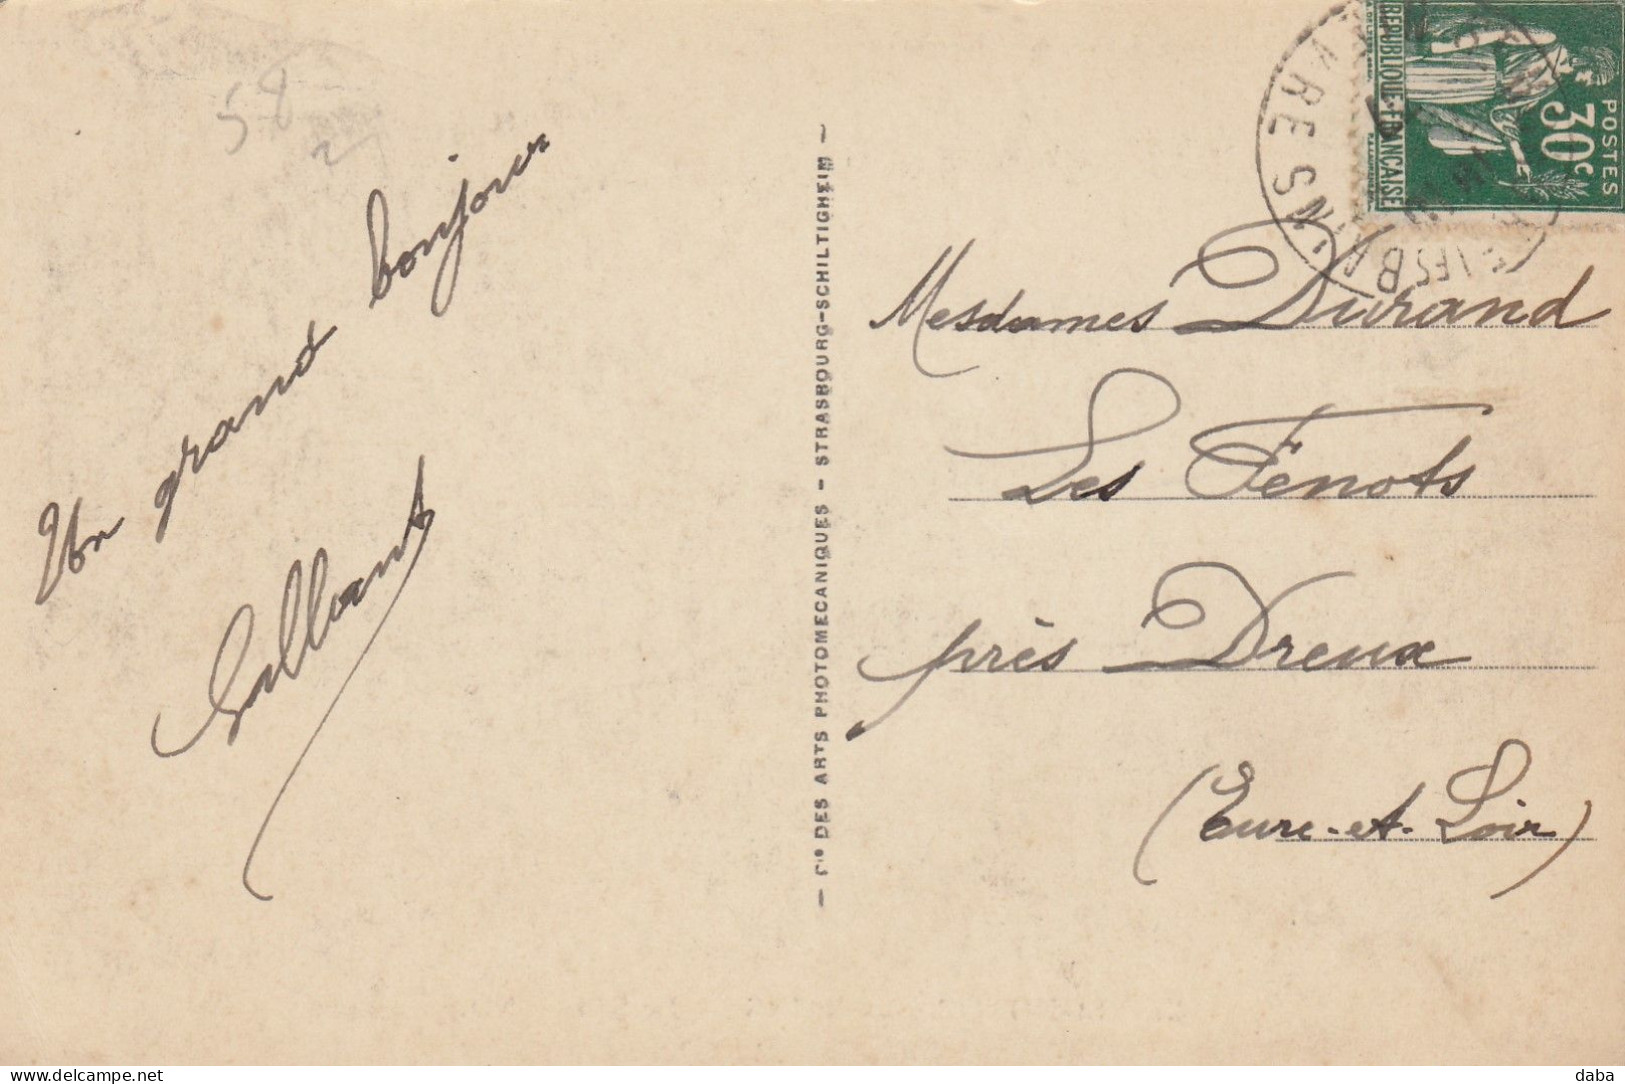 58
2
Un grand bonjour
Gallant
— Cie DES ARTS PHOTOMECANIQUES - STRASBOURG-SCHILTIGHEIM —
REPUBLIQUE-FRANÇAISE
POSTES
30c
Mesdames Durand
Les Fenots
près Dreux
(Eure-et-Loir)
delcampe.net
daba